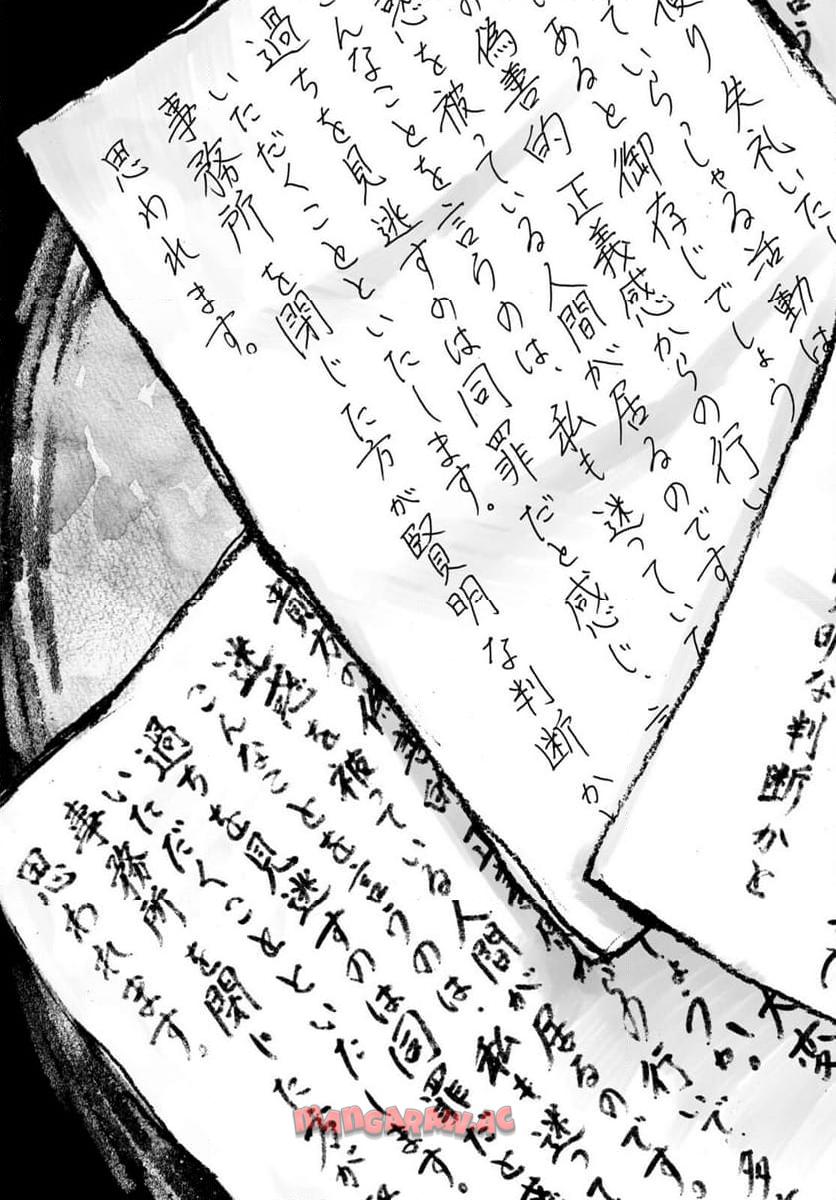 言う
便り 失礼いたし
ていらっしゃる活動は
であると御存じでしょう
の偽善的正義感からの行い
惑を被っている人間が居るのです
こんなことを言うのは、私も迷ってい
過ちを見逃すのは同罪だと感じ、
いただくことといたします。
事務所を閉じた方が賢明な判断か
思われます。
な判断かと
大変
ょうか!
貴方の偽善的正義感からの行いで
迷惑を被っている人間が居るのです。
こんなことを言うのは、私も迷って
過ちを見逃すのは同罪だと
いただくことといたします。
事務所を閉じた方が
思われます。
MANGARAW.AC